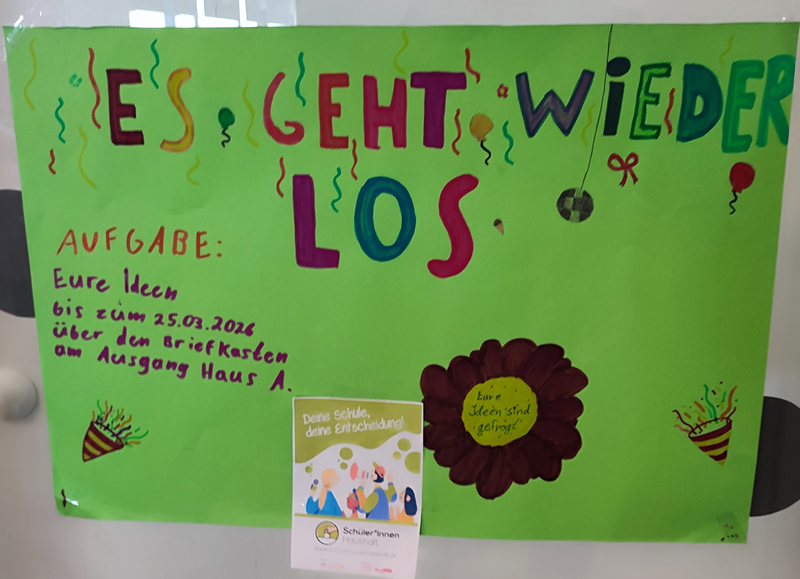 ES GEHT WIEDER
LOS
AUFGABE:
Eure Ideen
bis zum 25.03.2026
über den Briefkasten
am Ausgang Haus A.
Eure
Ideen sind
gefragt
Deine Schule,
deine Entscheidung!
Schüler*innen
Haushalt